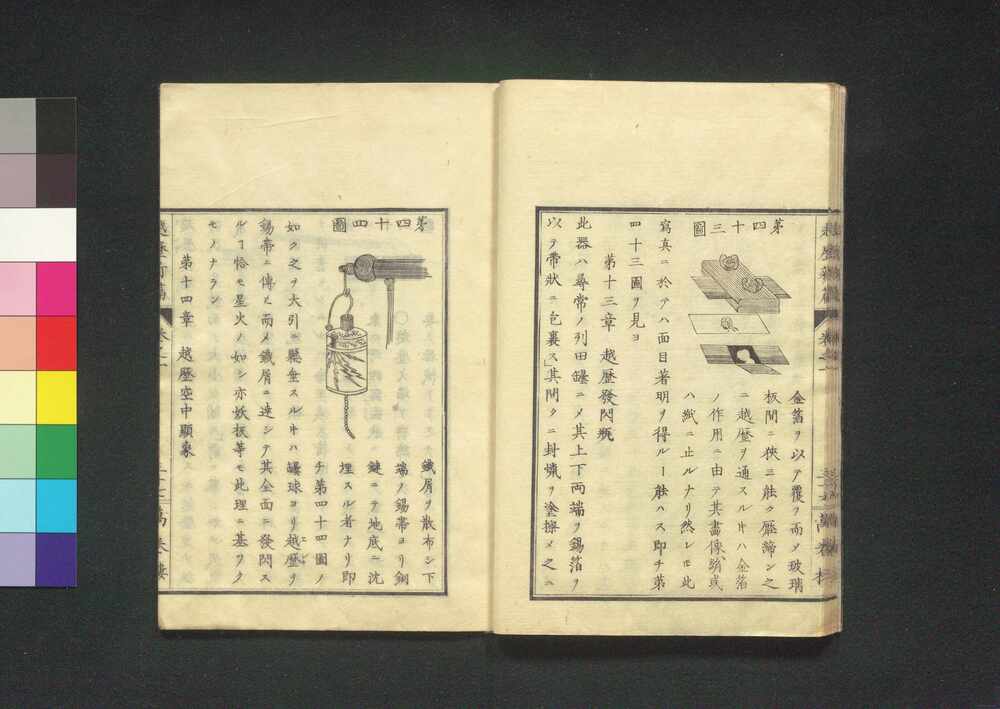 第四十三圖
金箔ヲ以テ覆ヲ而メ玻璃
板間ニ狹ミ能ク壓締シ之
ニ越歷ヲ通スル𪜈ハ金箔
ノ作用ニ由テ其畵像
ハ紙ニ止ルナリ然レ𪜈此
寫真ニ於テハ面目著明ヲ得ルー能ハス即チ第
四十三圖ヲ見ヨ
第十三章 越歷發閃瓶
此器ハ尋常ノ列田罎ニメ其上下両端ヲ錫箔ヲ
以ヲ帶狀ニ包裹ス」其間タニ封蠟ヲ塗擦メ之ニ
第四十四圖
鐵屑ヲ散布シ下
端ノ錫帶ヨリ銅
鏈ニテ地底ニ沈
埋スル者ナリ即
チ第四十四圖ノ
如ク之ヲ大引ニ懸垂スルキハ罎球ヨリ越歷ヲ
錫帶ニ傳ヘ而メ鐵屑ニ達シテ其全面ニ發閃ス
ルー恰モ星火ノ如シ亦妖板等モ此理ニ基ヲク
モノナラン
第十四章 越歷空中顯象